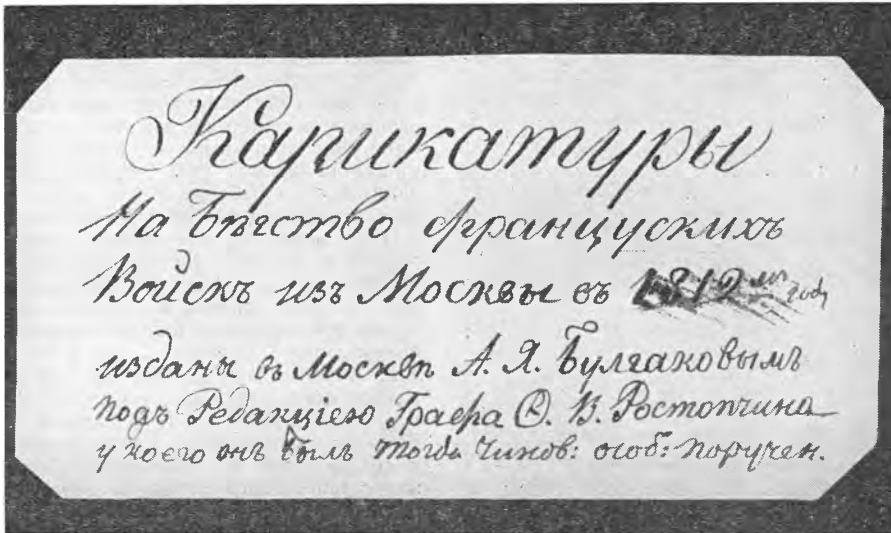 Карикатуры
На Бѣгство французскихъ
Войскъ изъ Москвы въ 1812мъ году
изданы въ Москвѣ А. Я. Булгаковымъ
подъ Редакціею Графа Ѳ. В. Ростопчина
у коего онъ былъ тогда Чинов: особ: поручен.